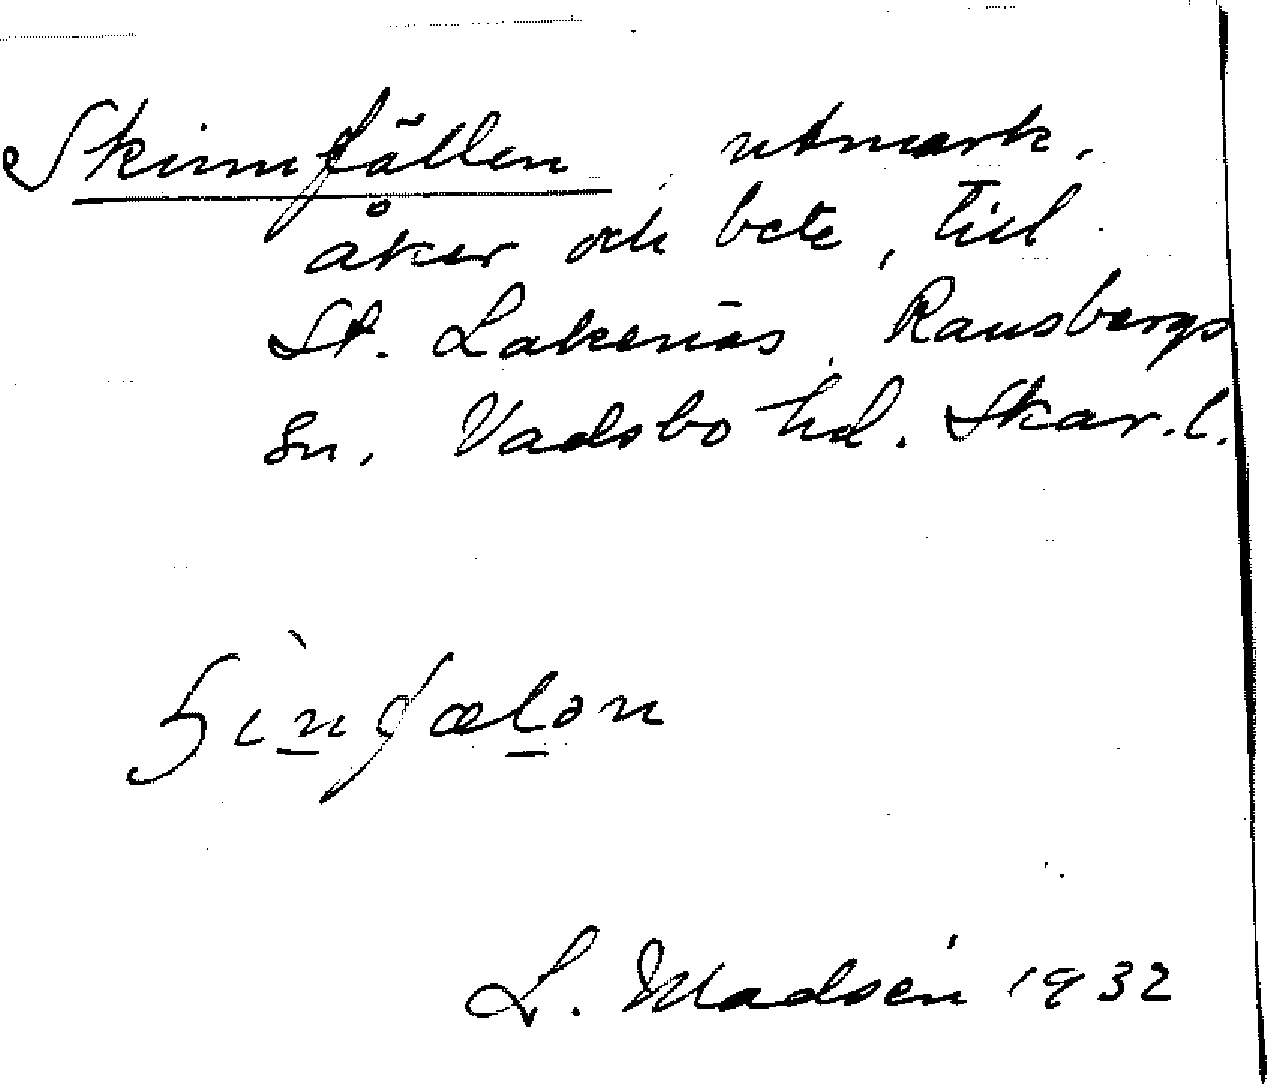 Skinnfällen utmark,
åker och bete, till
St. Lakenäs, Ransbergs
sn, Vadsbo hd. Skar. l.
L. Madsén 1932